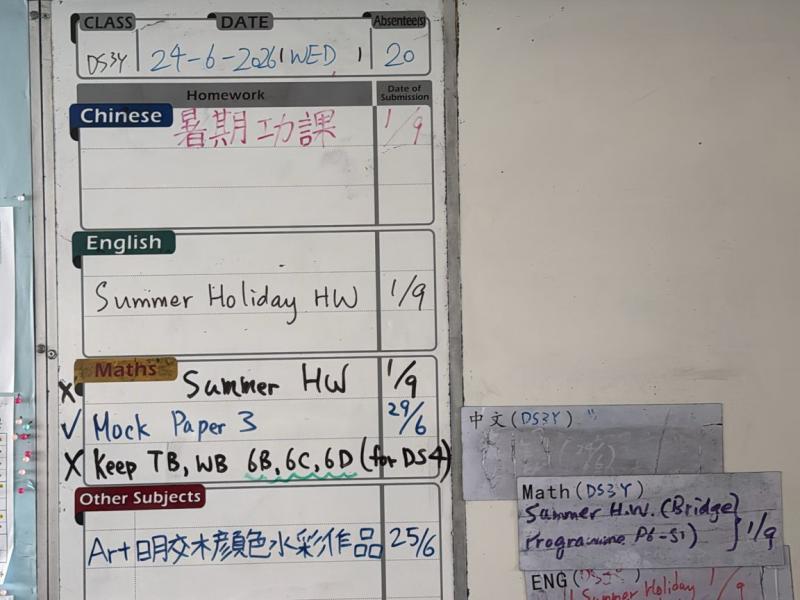 CLASS DATE Absentee(s)
DS3Y 24-6-2026 (WED) 20
Homework Date of Submission
Chinese
暑期功課 1/9
English
Summer Holiday HW 1/9
Maths
X Summer HW 1/9
✓ Mock Paper 3 29/6
X Keep TB, WB 6B, 6C, 6D (for DS4)
Other Subjects
Art 明交木顏色水彩作品 25/6
中文(DS3Y)
Math (DS3Y)
Summer H.W. (Bridge
Programme P6-S1) } 1/9
ENG
Summer Holiday